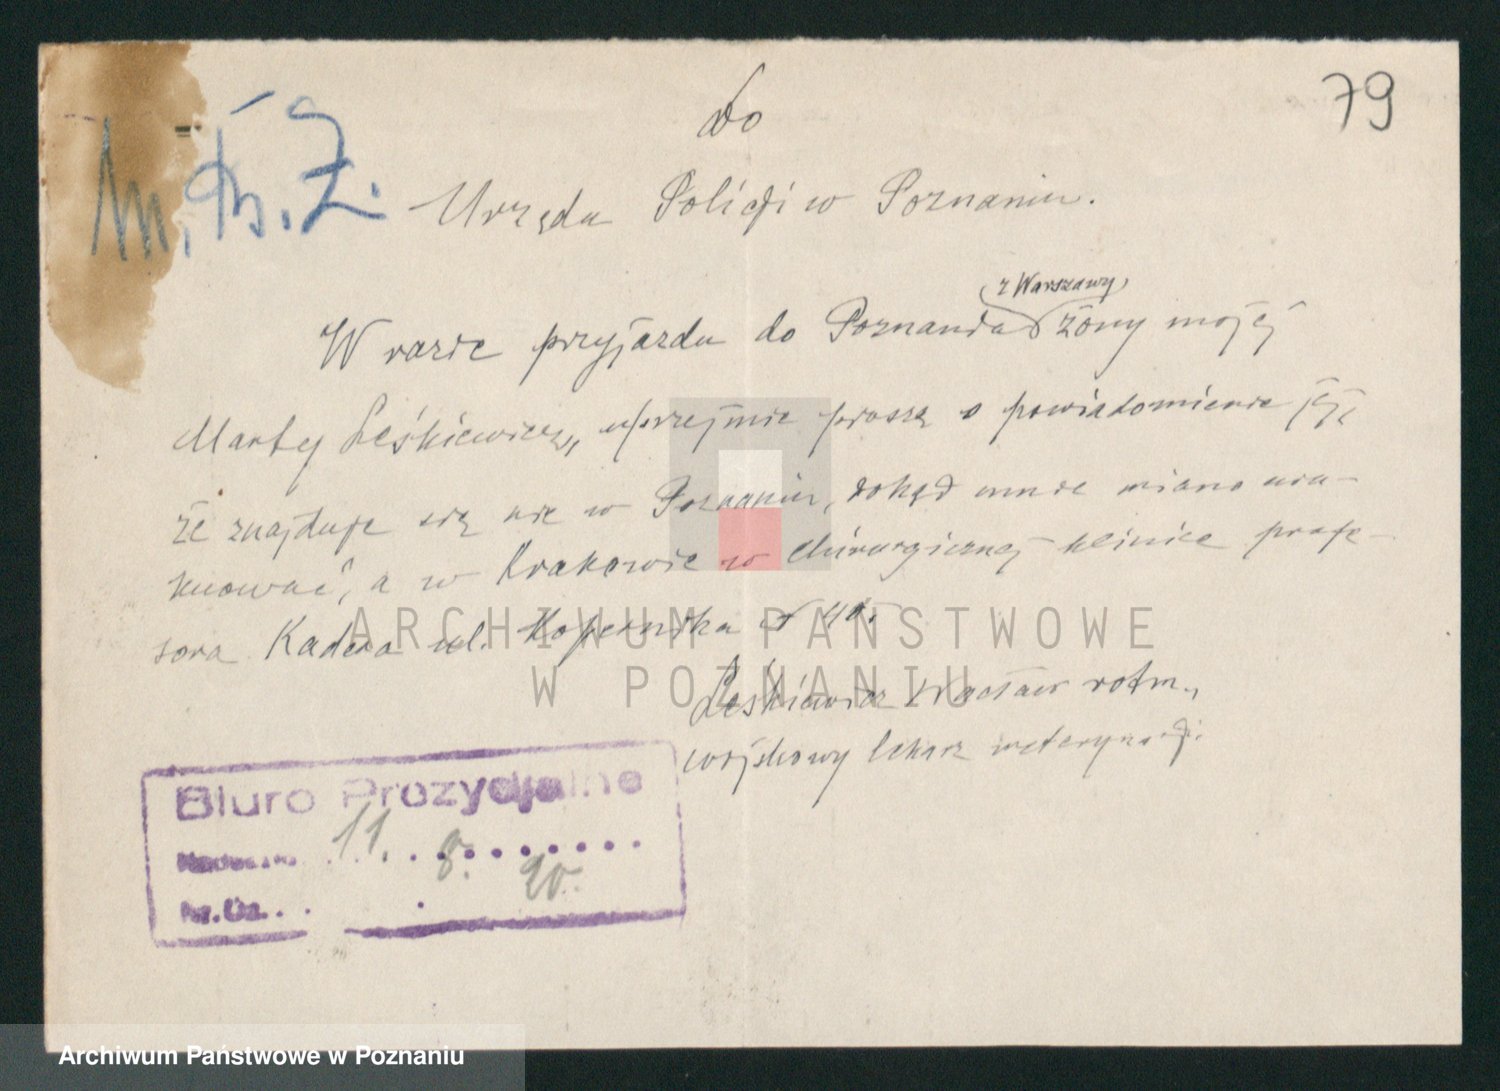 79
do
M. B. Z.
Urzędu Policji w Poznaniu.
z Warszawy
W razie przyjazdu do Poznania żony mojej
Marty Leśkiewicz, uprzejmie proszę o powiadomienie jej,
że znajduję się nie w Poznaniu, dokąd mnie miano ewa-
kuować, a w Krakowie w chirurgicznej klinice profe-
sora Kadera ul. Kopernika № 40.
Leśkiewicz Wacław rotm.,
wojskowy lekarz weterynarji.
Biuro Prezydjalne
11. 8. 20.
Nr. Dz.
ARCHIWUM PAŃSTWOWE
W POZNANIU
Archiwum Państwowe w Poznaniu